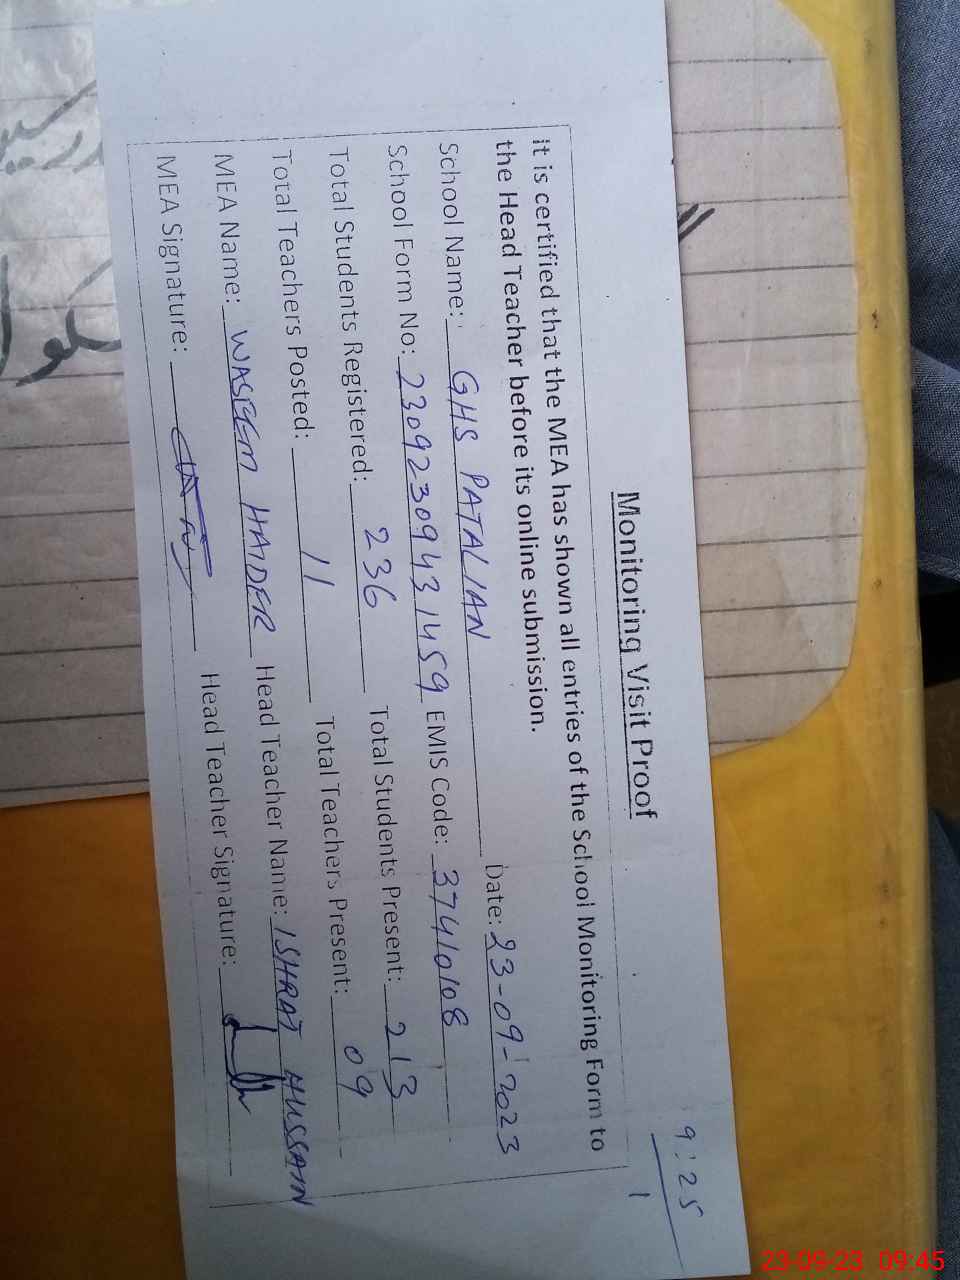 9:25
Monitoring Visit Proof
it is certified that the MEA has shown all entries of the School Monitoring Form to
the Head Teacher before its online submission.
School Name: GHS PATALIAN Date: 23-09-2023
School Form No: 23092309431459 EMIS Code: 37410108
Total Students Registered: 236 Total Students Present: 213
Total Teachers Posted: 11 Total Teachers Present: 09
MEA Name: WASEEM HAIDER Head Teacher Name: ISHRAT HUSSAIN
MEA Signature: Head Teacher Signature:
23-09-23 09:45